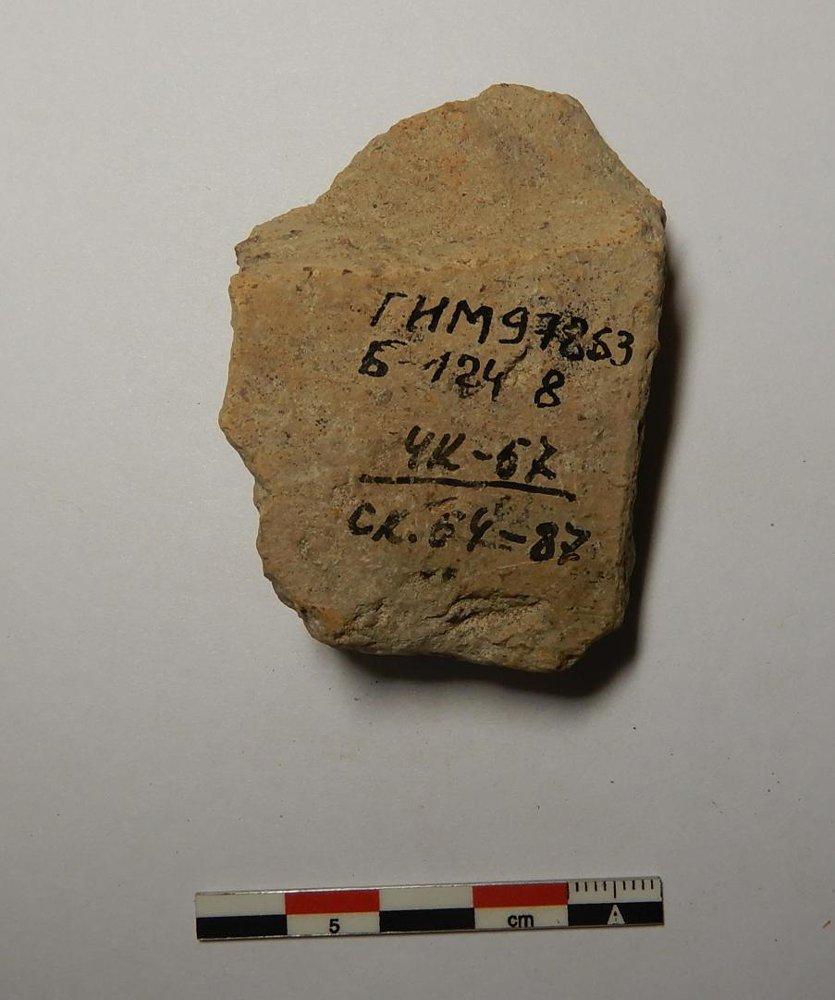 ГИМ97863
Б-124/8
ЧК-67
СК.64-87
5 cm